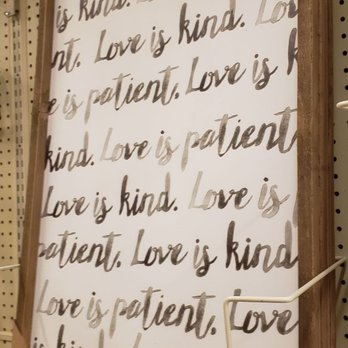 is kind. Love
nt. Love is kind. Lov
e is patient. Love is k
kind. Love is patient
Love is kind. Love is
patient. Love is kind
Love is patient. Love
is kind. Love